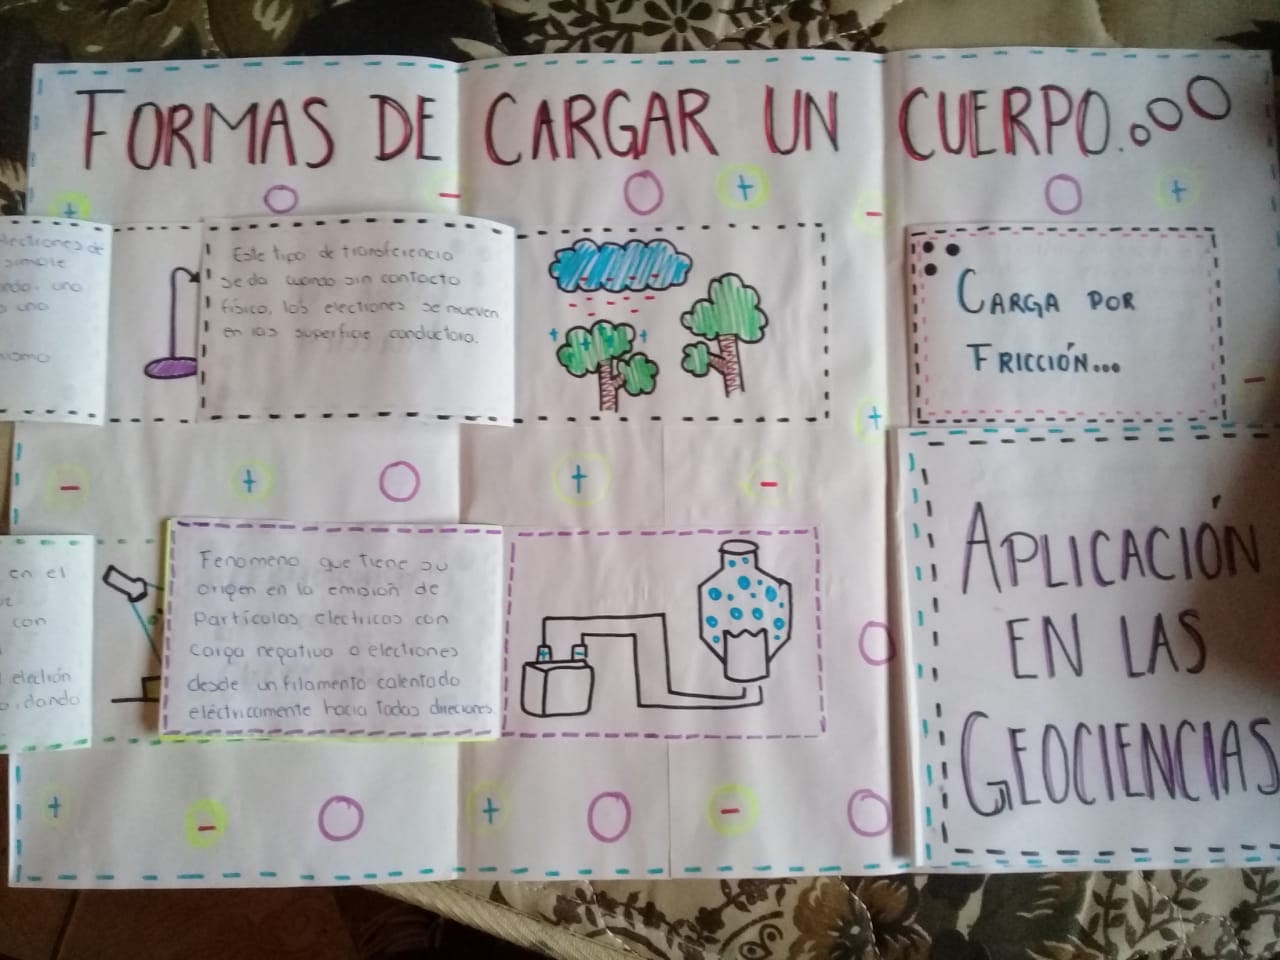 FORMAS DE CARGAR UN CUERPO...
electrones de
simple
una
una
mismo
Este tipo de transferencia
se da cuando sin contacto
físico, los electrones se mueven
en las superficie conductora.
CARGA POR
FRICCIÓN...
en el
con
electrón
dando
Fenomeno que tiene su
origen en la emisión de
Partículas electricas con
carga negativa o electrones
desde un filamento calentado
eléctricamente hacia todas direciones.
APLICACIÓN
EN LAS
GEOCIENCIAS